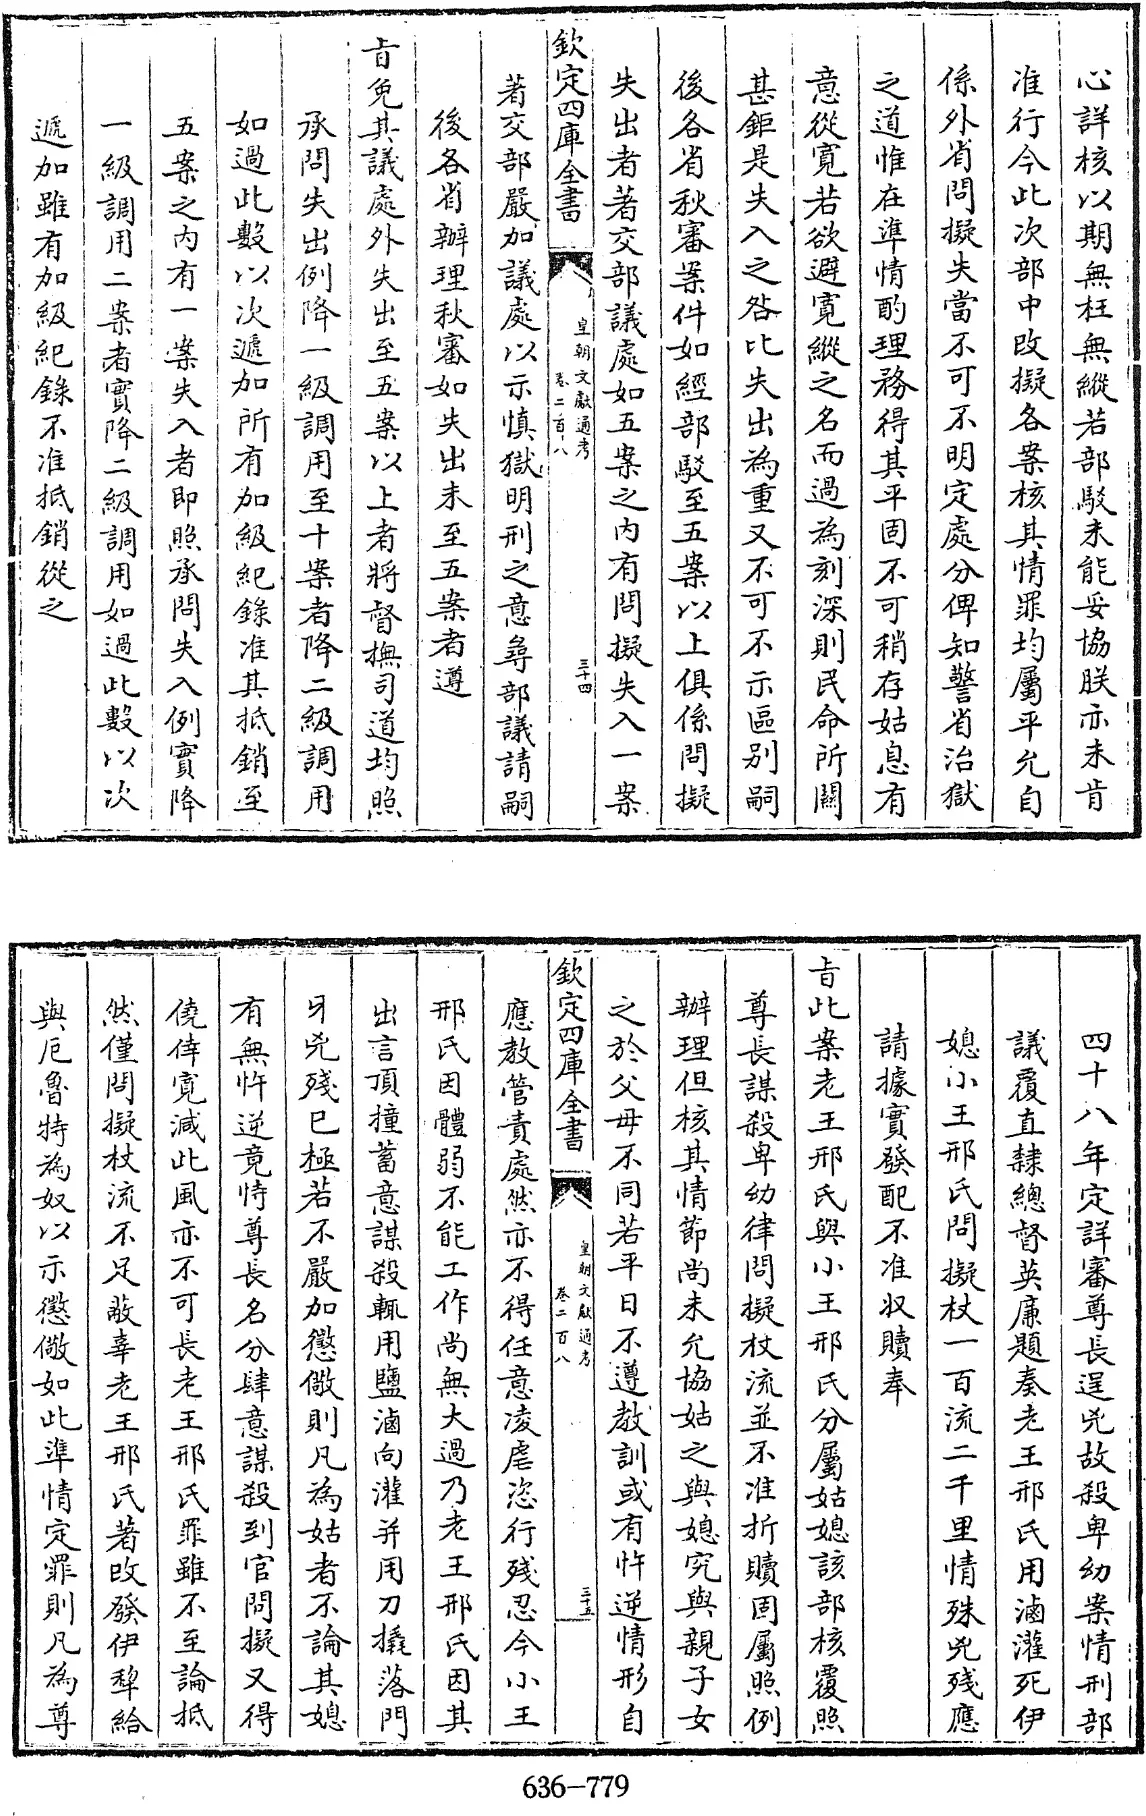 心詳核以期無枉無縱若部駁未能妥協朕亦未肯
准行今此次部中改擬各案核其情罪均屬平允自
係外省問擬失當不可不明定處分俾知警省治獄
之道惟在準情酌理務得其平固不可稍存姑息有
意從寛若欲避寛縱之名而過為刻深則民命所關
甚鉅是失入之咎比失出為重又不可不示區别嗣
後各省秋審案件如經部駁至五案以上俱係問擬
失出者著交部議處如五案之内有問擬失入一案
欽定四庫全書
皇朝文獻通考
卷二百八
三十四
著交部嚴加議處以示慎獄明刑之意尋部議請嗣
後各省辦理秋審如失出未至五案者遵
㫖免其議處外失出至五案以上者將督撫司道均照
承問失出例降一級調用至十案者降二級調用
如過此數以次遞加所有加級紀錄准其抵銷至
五案之内有一案失入者即照承問失入例實降
一級調用二案者實降二級調用如過此數以次
遞加雖有加級紀錄不准抵銷從之
四十八年定詳審尊長逞兇故殺卑幼案情刑部
議覆直隸總督英廉題奏老王邢氏用滷灌死伊
媳小王邢氏問擬杖一百流二千里情殊兇殘應
請據實發配不准収贖奉
㫖此案老王邢氏與小王邢氏分屬姑媳該部核覆照
尊長謀殺卑幼律問擬杖流並不准折贖固屬照例
辦理但核其情節尚未允協姑之與媳究與親子女
之於父母不同若平日不遵教訓或有忤逆情形自
欽定四庫全書
皇朝文獻通考
卷二百八
三十五
應教管責處然亦不得任意凌虐恣行殘忍今小王
邢氏因體弱不能工作尚無大過乃老王邢氏因其
出言頂撞蓄意謀殺輒用鹽滷向灌并用刀撬落門
牙兇殘已極若不嚴加懲儆則凡為姑者不論其媳
有無忤逆竟恃尊長名分肆意謀殺到官問擬又得
僥倖寛減此風亦不可長老王邢氏罪雖不至論抵
然僅問擬杖流不足蔽辜老王邢氏著改發伊犂給
與厄魯特為奴以示懲儆如此準情定罪則凡為尊
636-779